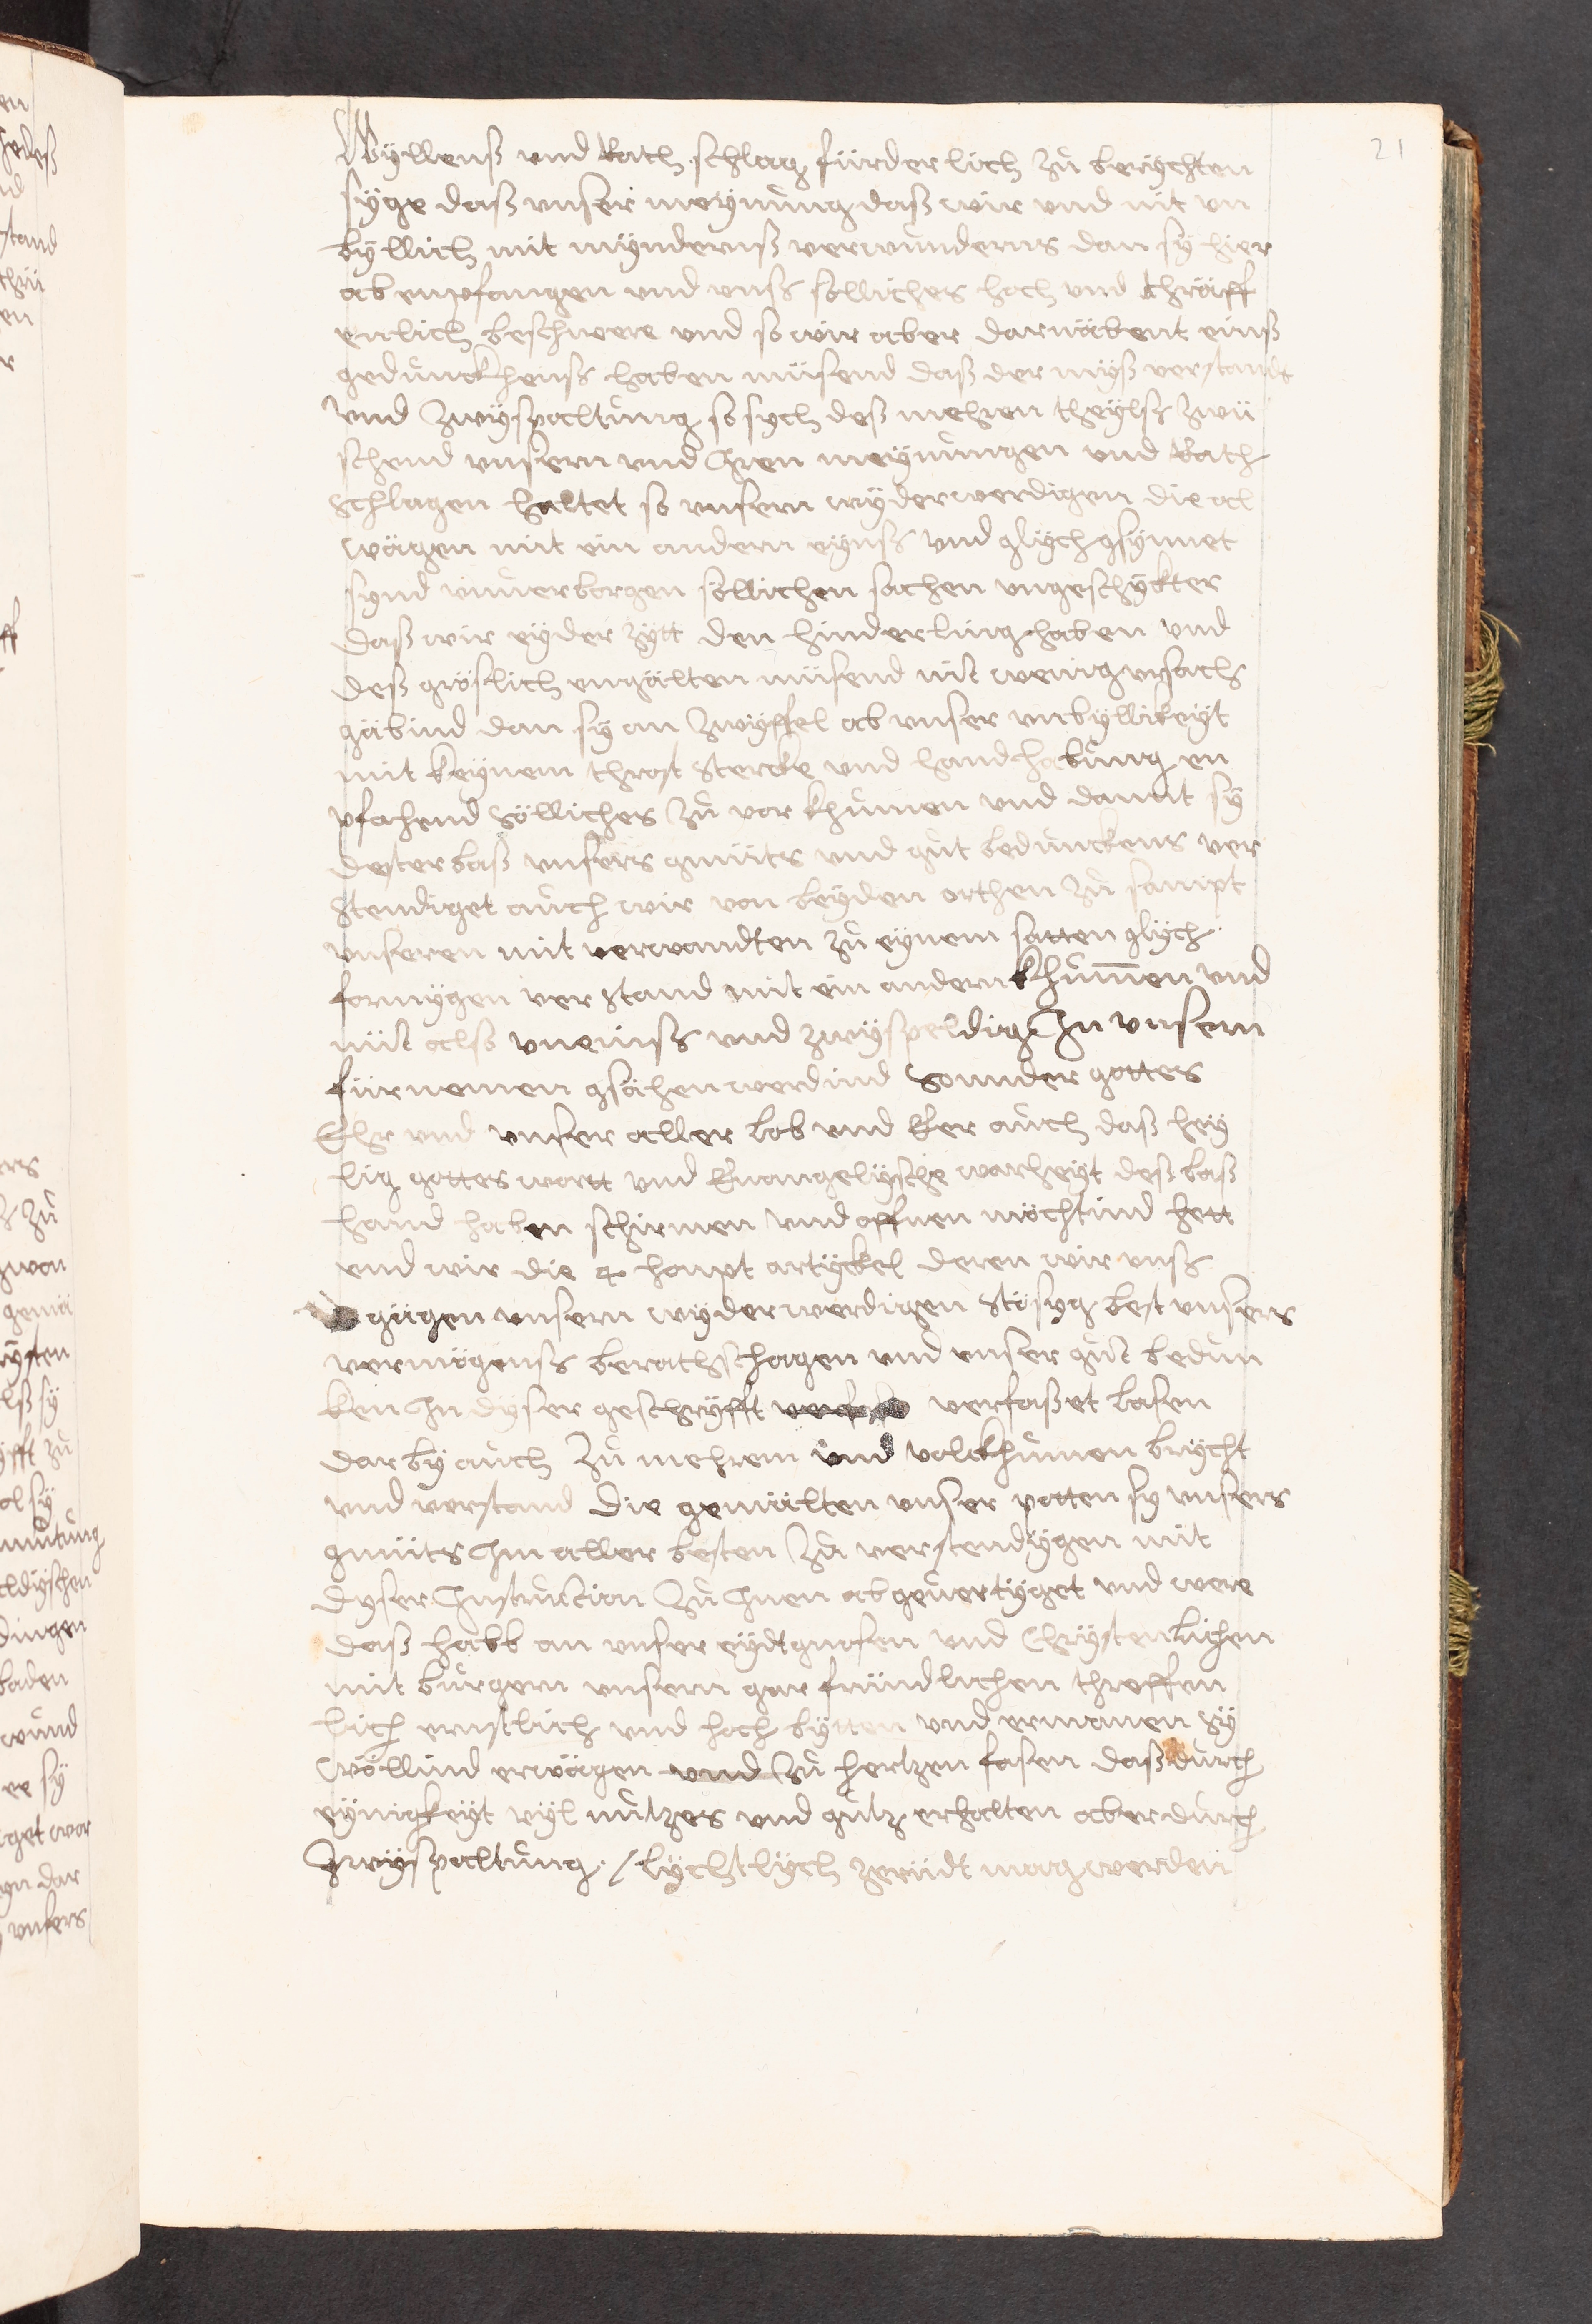 21
Wÿllenß vnd Rath schlag fürderlich zů berÿchten
sÿge daß vnser meÿnung daß wir vnd nit vn
bÿllich mit mÿnderniß verwunderns dan sÿ hier
ab empfangen vnd vnß sollicheß hoch vnd thräff
enlich beschwere vnd so wir aber darnäbent einß
gedunckhenß haben müsend daß der mÿß verstandt
vnd zwÿspaltung so sych deß mehren theÿlß zwü
schend vnsern vnd jren meÿnungen vnd Rath
schlagen haltet so vnsern wÿderwerdigen die al
wägen mit ein andern eÿnß vnd glÿch gsÿnnet
sÿnd vnuerborgen söllichen sachen vngeschÿkter
daß wir eÿder zÿtt den hinderling haben vnd
deß gröslich engälten müsend nit wenig vrsach
gäbind dan sÿ an zwÿffel ab vnser vnbÿllikeÿt
mit keÿnem throst stercke vnd handhabung en
pfahend Söllicheß zů vor khumen vnd damit sÿ
dester baß vnsers gmüts vnd gůt beduncken ver
stendiget auch wir von beÿden orthen zů sampt
vnseren mit verwandten zů eÿnem satten glÿch
formÿgen verstand mit ein andern khum̅en vnd
nüt alß vneinß vnd zwÿspeldig Jn vnserm
fürnemen gsähen werdind Sonnder gottes
Ehr vnd vnser aller lob vnd Eer auch daß heÿ
lig gottes wortt vnd Euangelÿsche warheÿt deß baß
hand haben schirmen vnd offnen möchtind hett
end wir die 4 houpt artÿckel deren wir vnß
gägen vnsern wÿderwerdigen stösÿg best vnsers
vermögenß berathschagen vnd vnser gůt bedun
ken Jn dÿser geschrÿfft verfaßet lasen
dar bÿ auch zů mehrem vnd volckhumen brÿcht
vnd verstand die gemälten vnser potten sy vnsers
gmüts Jm aller besten zů verstendÿgen mit
dÿser Jnstruction zů Jnen abgeuertÿget vnd were
daß habb an vnser eÿdtgnosen vnd Chrÿstenlichen
mit burgern vnsern gar fründlichen threffen
lich ernstlich vnd hoch bÿtten vnd ermanen sÿ
wöllind erwägen vnd zů hertzen fasen daß durch
eÿnigkeÿt vÿl nutzes vnd gůtz erhalten aber durch
zwÿspaltung / lÿchtlÿch zerüdt mag werden